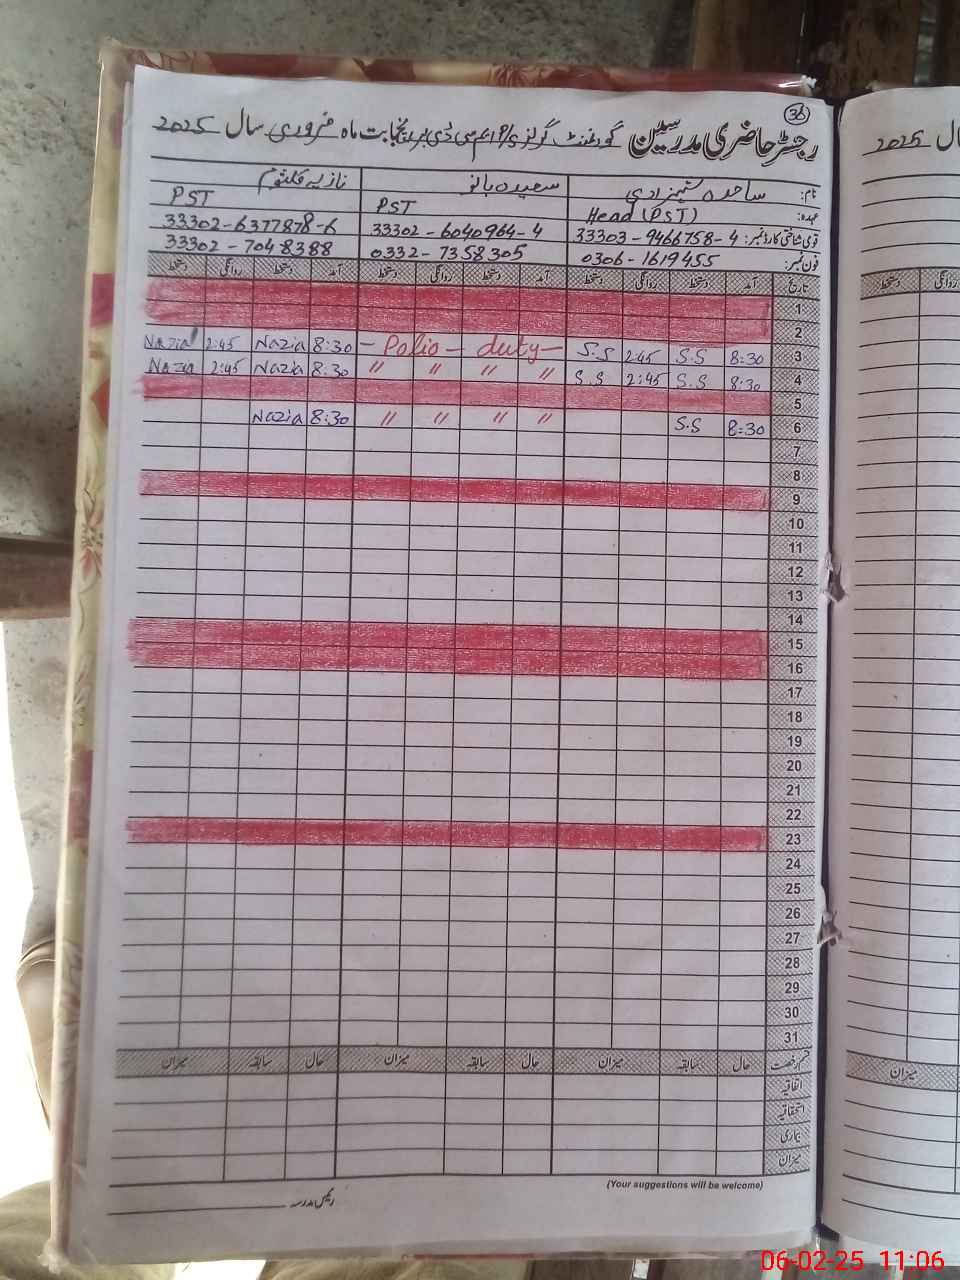 36
رجسٹر حاضری مدرسین گورنمنٹ گرلز P/S ایم سی ڈی بابت ماہ فروری سال 2025
نام: ساجدہ شہزادی سعیدہ بانو نازیہ کلثوم
عہدہ: Head (PST) PST PST
قومی شناختی کارڈ نمبر: 33303-9466758-4 33302-6040964-4 33302-6377878-6
فون نمبر: 0306-1619455 0332-7358305 33302-7048388
تاریخ آمد دستخط روانگی دستخط آمد دستخط روانگی دستخط آمد دستخط روانگی دستخط
1
2
3 8:30 S.S 2:45 S.S – Polio – duty – 8:30 Nazia 2:45 Nazia
4 8:30 S.S 2:45 S.S 〃 〃 〃 〃 8:30 Nazia 2:45 Nazia
5
6 8:30 S.S 〃 〃 〃 〃 8:30 Nazia
7
8
9
10
11
12
13
14
15
16
17
18
19
20
21
22
23
24
25
26
27
28
29
30
31
قسم رخصت حال سابقہ میزان حال سابقہ میزان حال سابقہ میزان
اتفاقیہ
استحقاقیہ
بیماری
میزان
(Your suggestions will be welcome)
رئیس مدرسہ
2025
دستخط روانگی
میزان
06-02-25 11:06